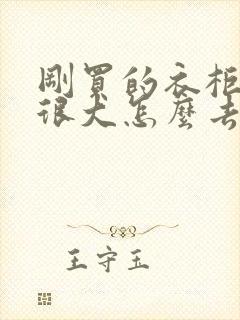 剛買的衣柜
很大怎麼去
王守玉